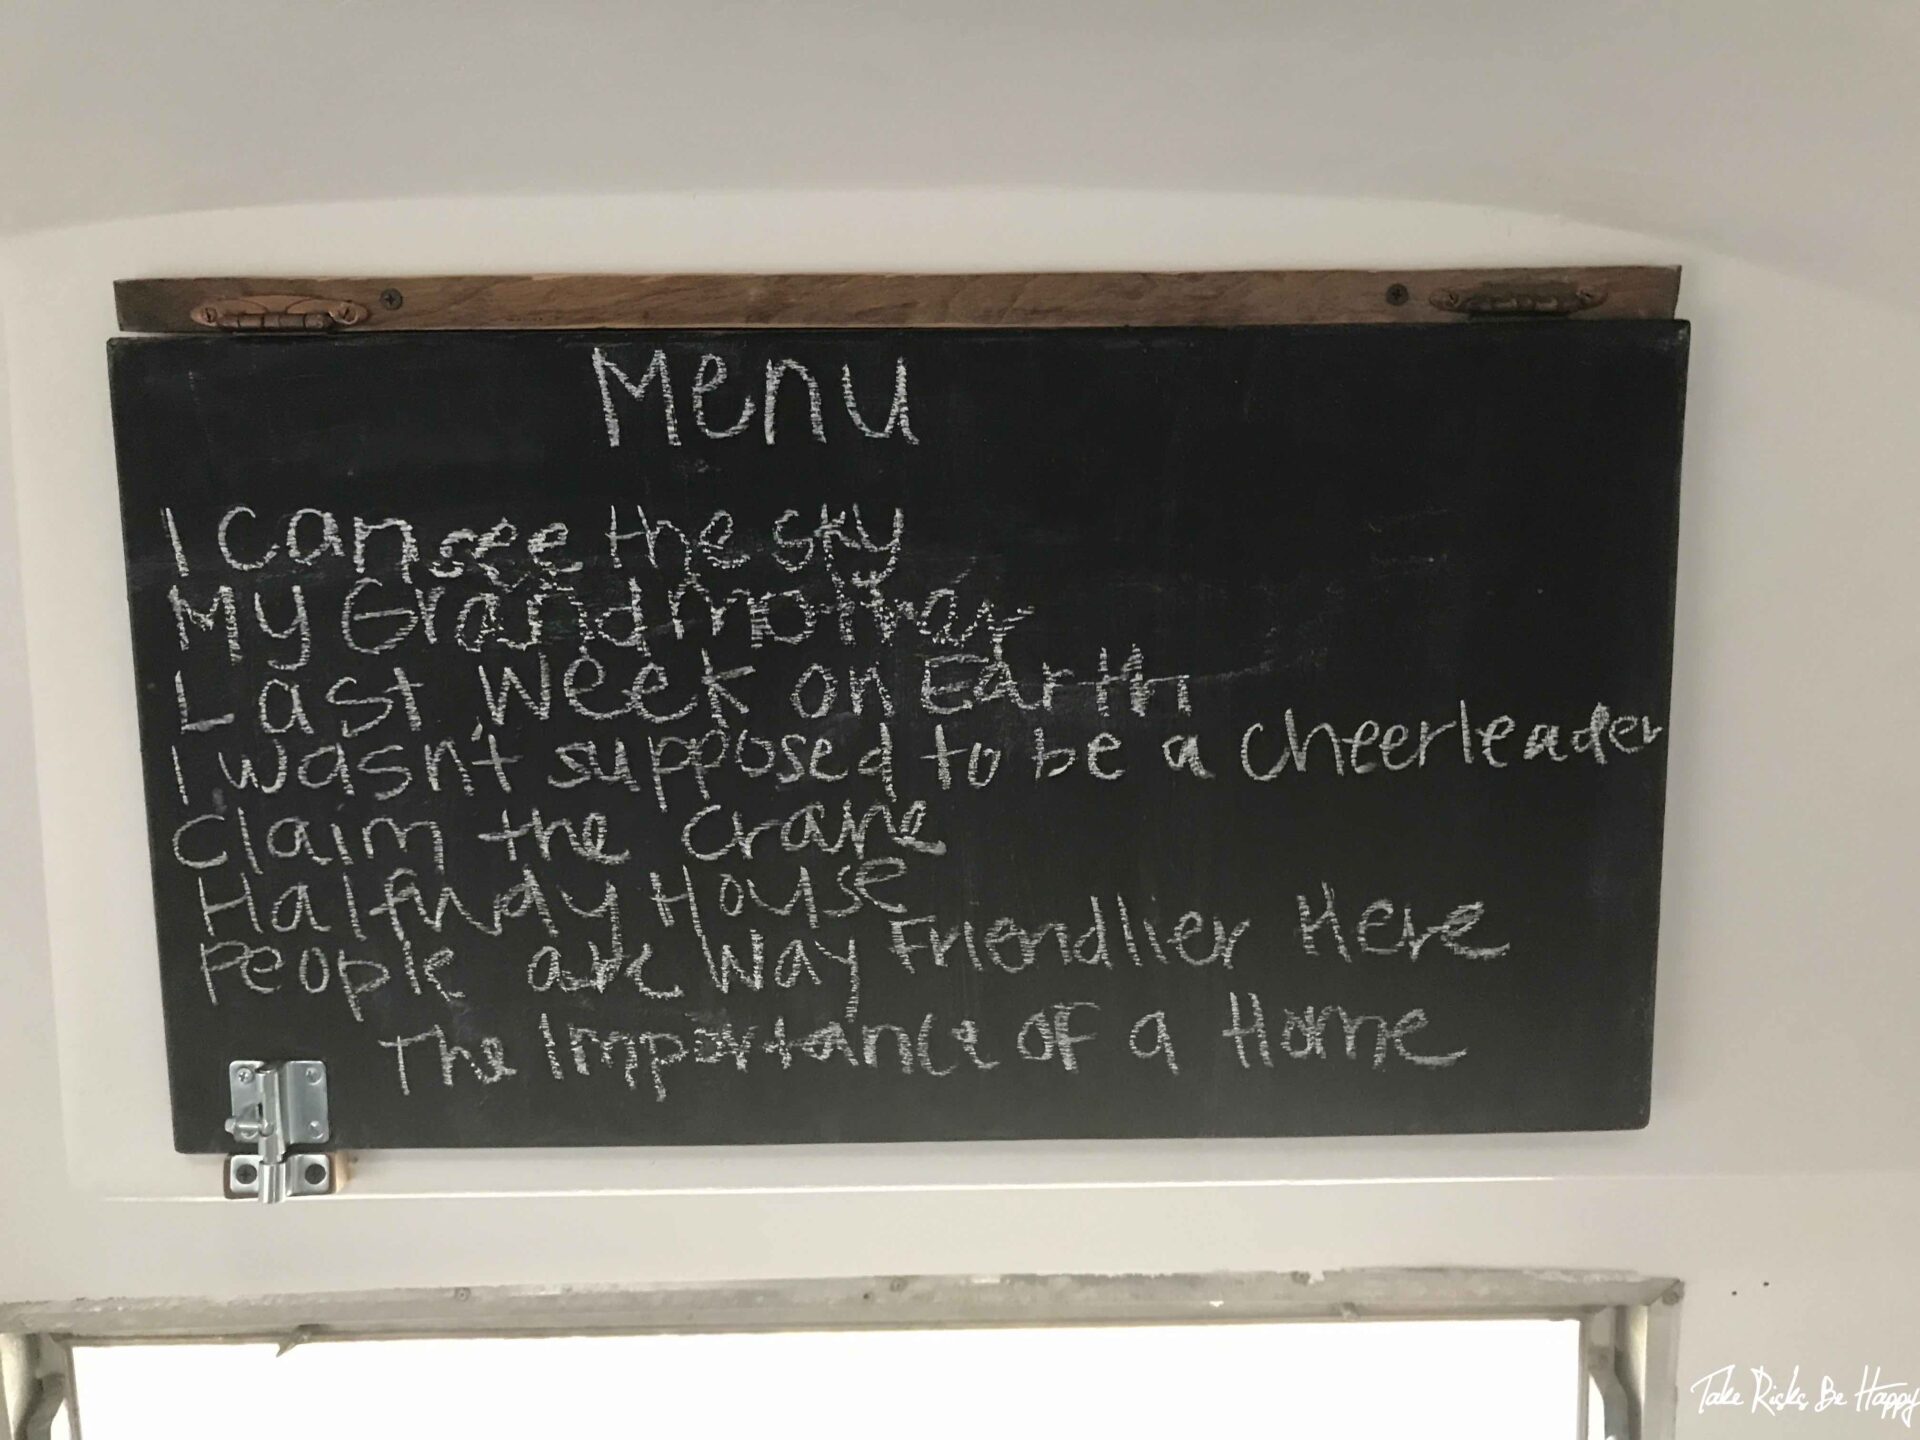 Menu
I can see the sky
My Grandmother
Last Week on Earth
I wasn't supposed to be a cheerleader
Claim the crane
Halfway House
People are Way Friendlier Here
The Importance of a Home
Take Risks Be Happy